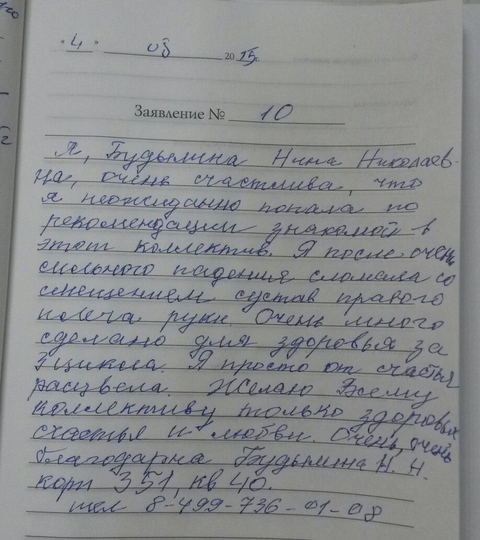 "4" 05 2015г.
Заявление № 10
Я, Будылина Нина Николаев-
на, очень счастлива, что
я неожиданно попала по
рекомендации знакомой в
этот коллектив. Я после очень
сильного падения сломала со
смещением сустав правого
плеча руки. Очень много
сделано для здоровья за
3 цикла. Я просто от счастья
расцвела. Желаю Всему
коллективу только здоровья
счастья и любви. Очень, очень
благодарна Будылина Н. Н.
корп 351, кв 40.
тел 8-499-736-01-08